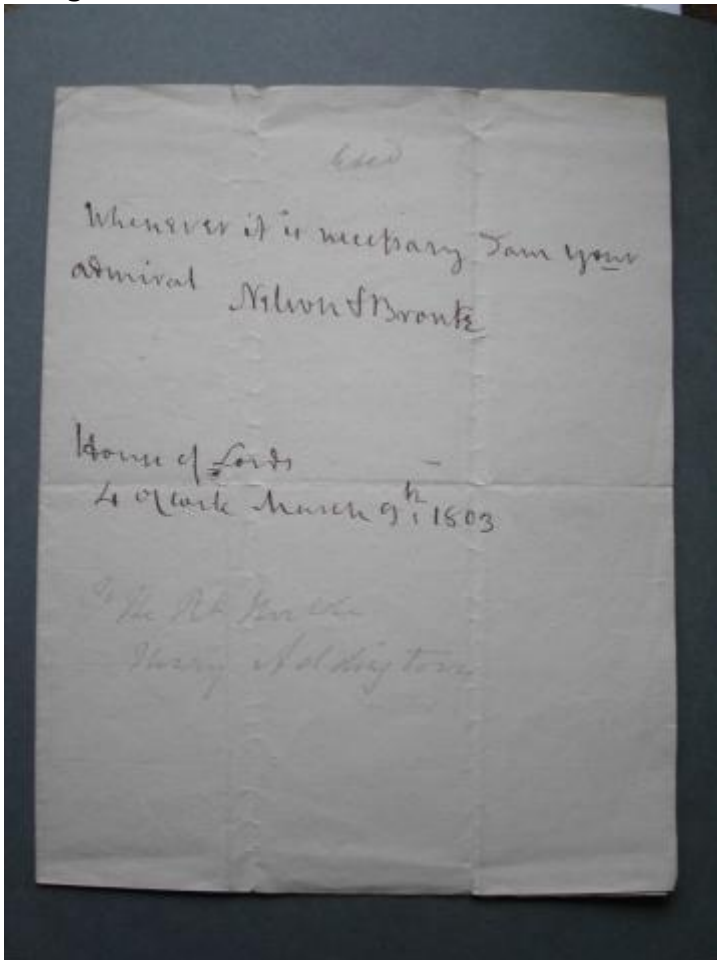 Whenever it is necessary I am your
admiral Nelson & Bronte
House of Lords
4 oclock March 9th: 1803
To
The Rt Honble
Henry Addington